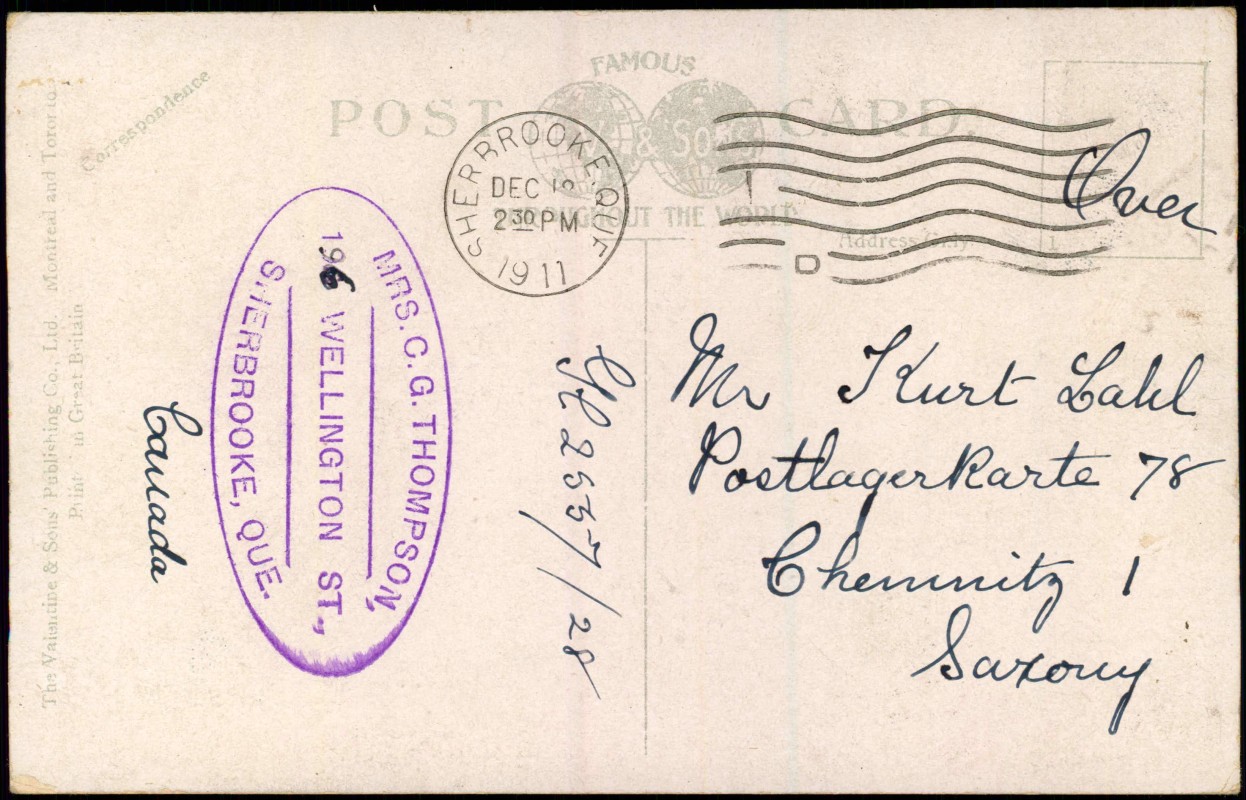 FAMOUS
POST CARD.
& Sons
THROUGHOUT THE WORLD
Correspondence
Address Only.
The Valentine & Sons' Publishing Co., Ltd. Montreal and Toronto.
Print in Great Britain
SHERBROOKE, QUE
DEC
2 30 PM
1911
D
Over
MRS. C. G. THOMPSON,
196 WELLINGTON ST.,
SHERBROOKE, QUE.
Canada
2557/28
Mr Kurt Lahl
Postlagerkarte 78
Chemnitz 1
Saxony